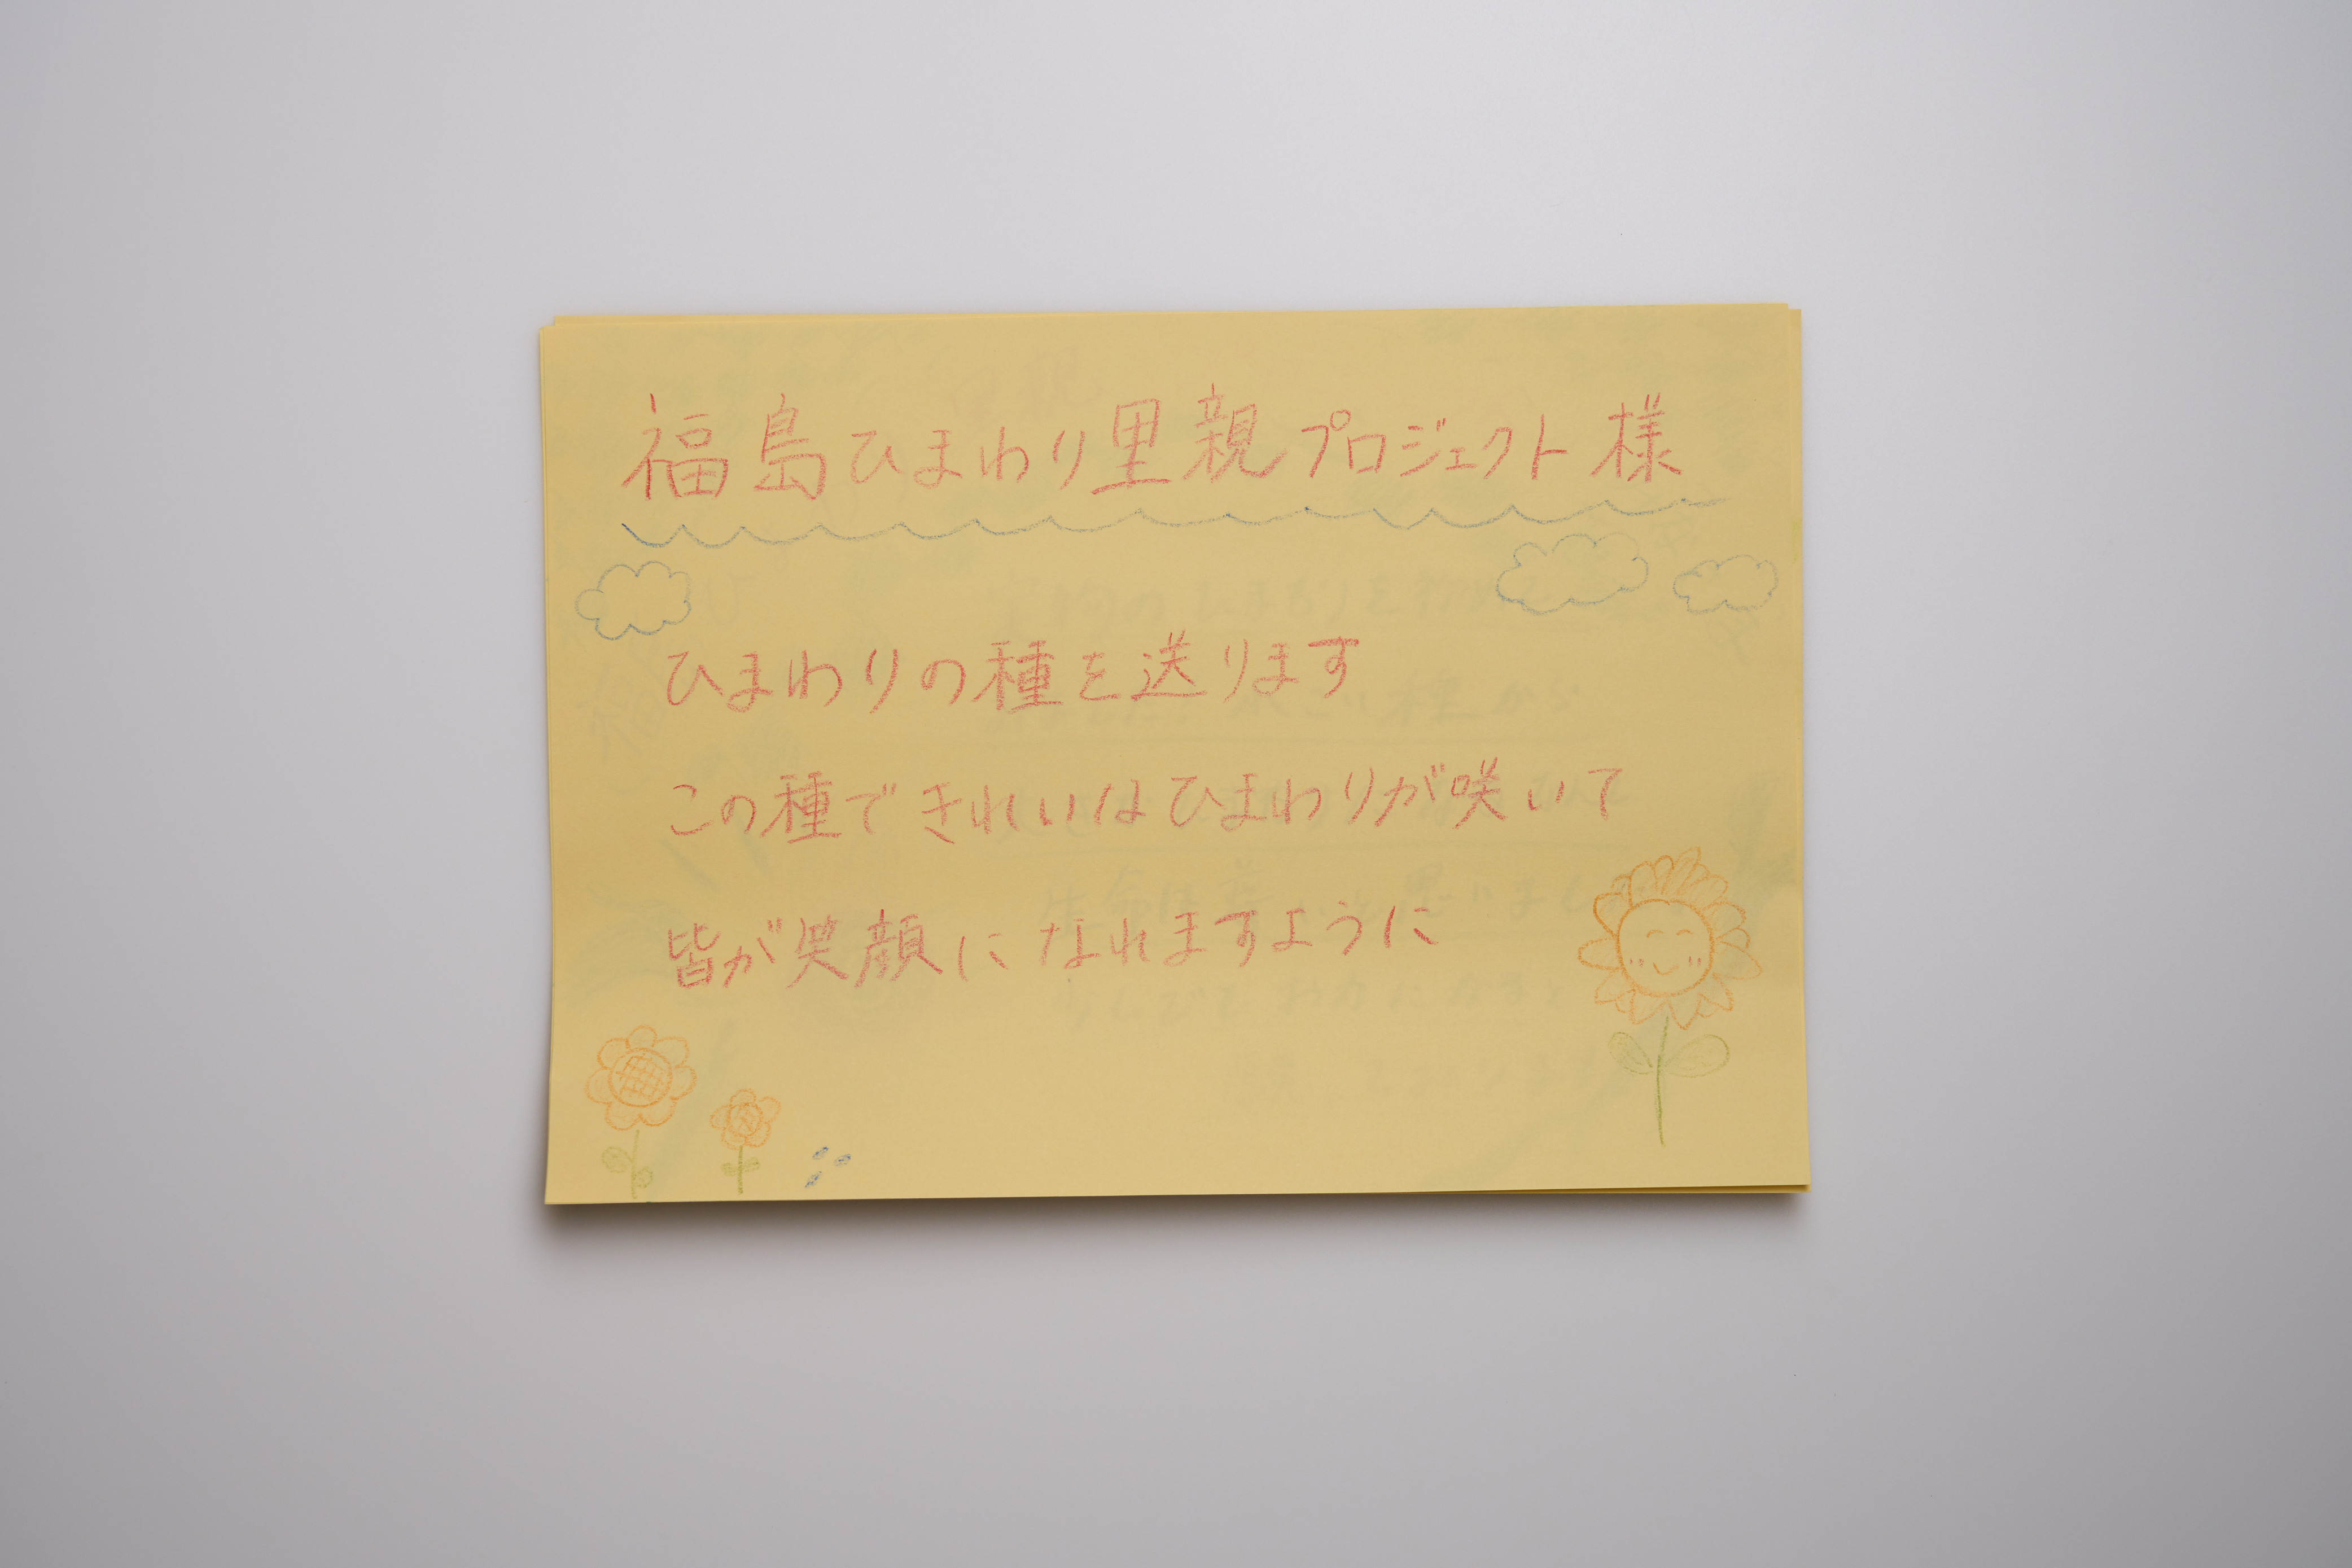 福島ひまわり里親プロジェクト様
ひまわりの種を送ります
この種できれいなひまわりが咲いて
皆が笑顔になれますように